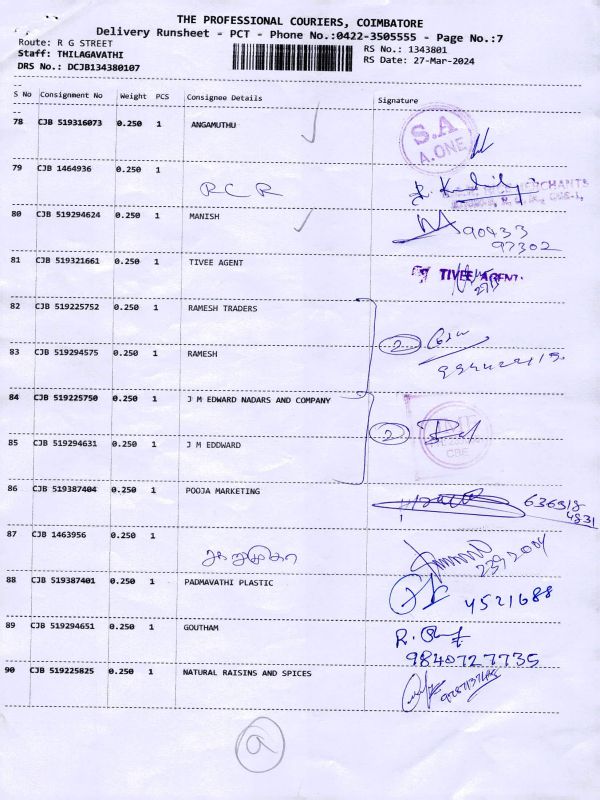 THE PROFESSIONAL COURIERS, COIMBATORE
Delivery Runsheet - PCT - Phone No.:0422-3505555 - Page No.:7
Route: R G STREET
RS No.: 1343801
Staff: THILAGAVATHI
RS Date: 27-Mar-2024
DRS No.: DCJB134380107
S No Consignment No Weight PCS Consignee Details Signature
78 CJB 519316073 0.250 1 ANGAMUTHU
S.A
A.ONE
79 CJB 1464936 0.250 1
RCR
80 CJB 519294624 0.250 1 MANISH
90433
97302
81 CJB 519321661 0.250 1 TIVEE AGENT
TIVEE AGENT.
82 CJB 519225752 0.250 1 RAMESH TRADERS
2
83 CJB 519294575 0.250 1 RAMESH
84 CJB 519225750 0.250 1 J M EDWARD NADARS AND COMPANY
2
85 CJB 519294631 0.250 1 J M EDDWARD
CBE
86 CJB 519387404 0.250 1 POOJA MARKETING
636918
4831
87 CJB 1463956 0.250 1
ஆறுமுகா
88 CJB 519387401 0.250 1 PADMAVATHI PLASTIC
4521688
89 CJB 519294651 0.250 1 GOUTHAM
9840727735
90 CJB 519225825 0.250 1 NATURAL RAISINS AND SPICES
a